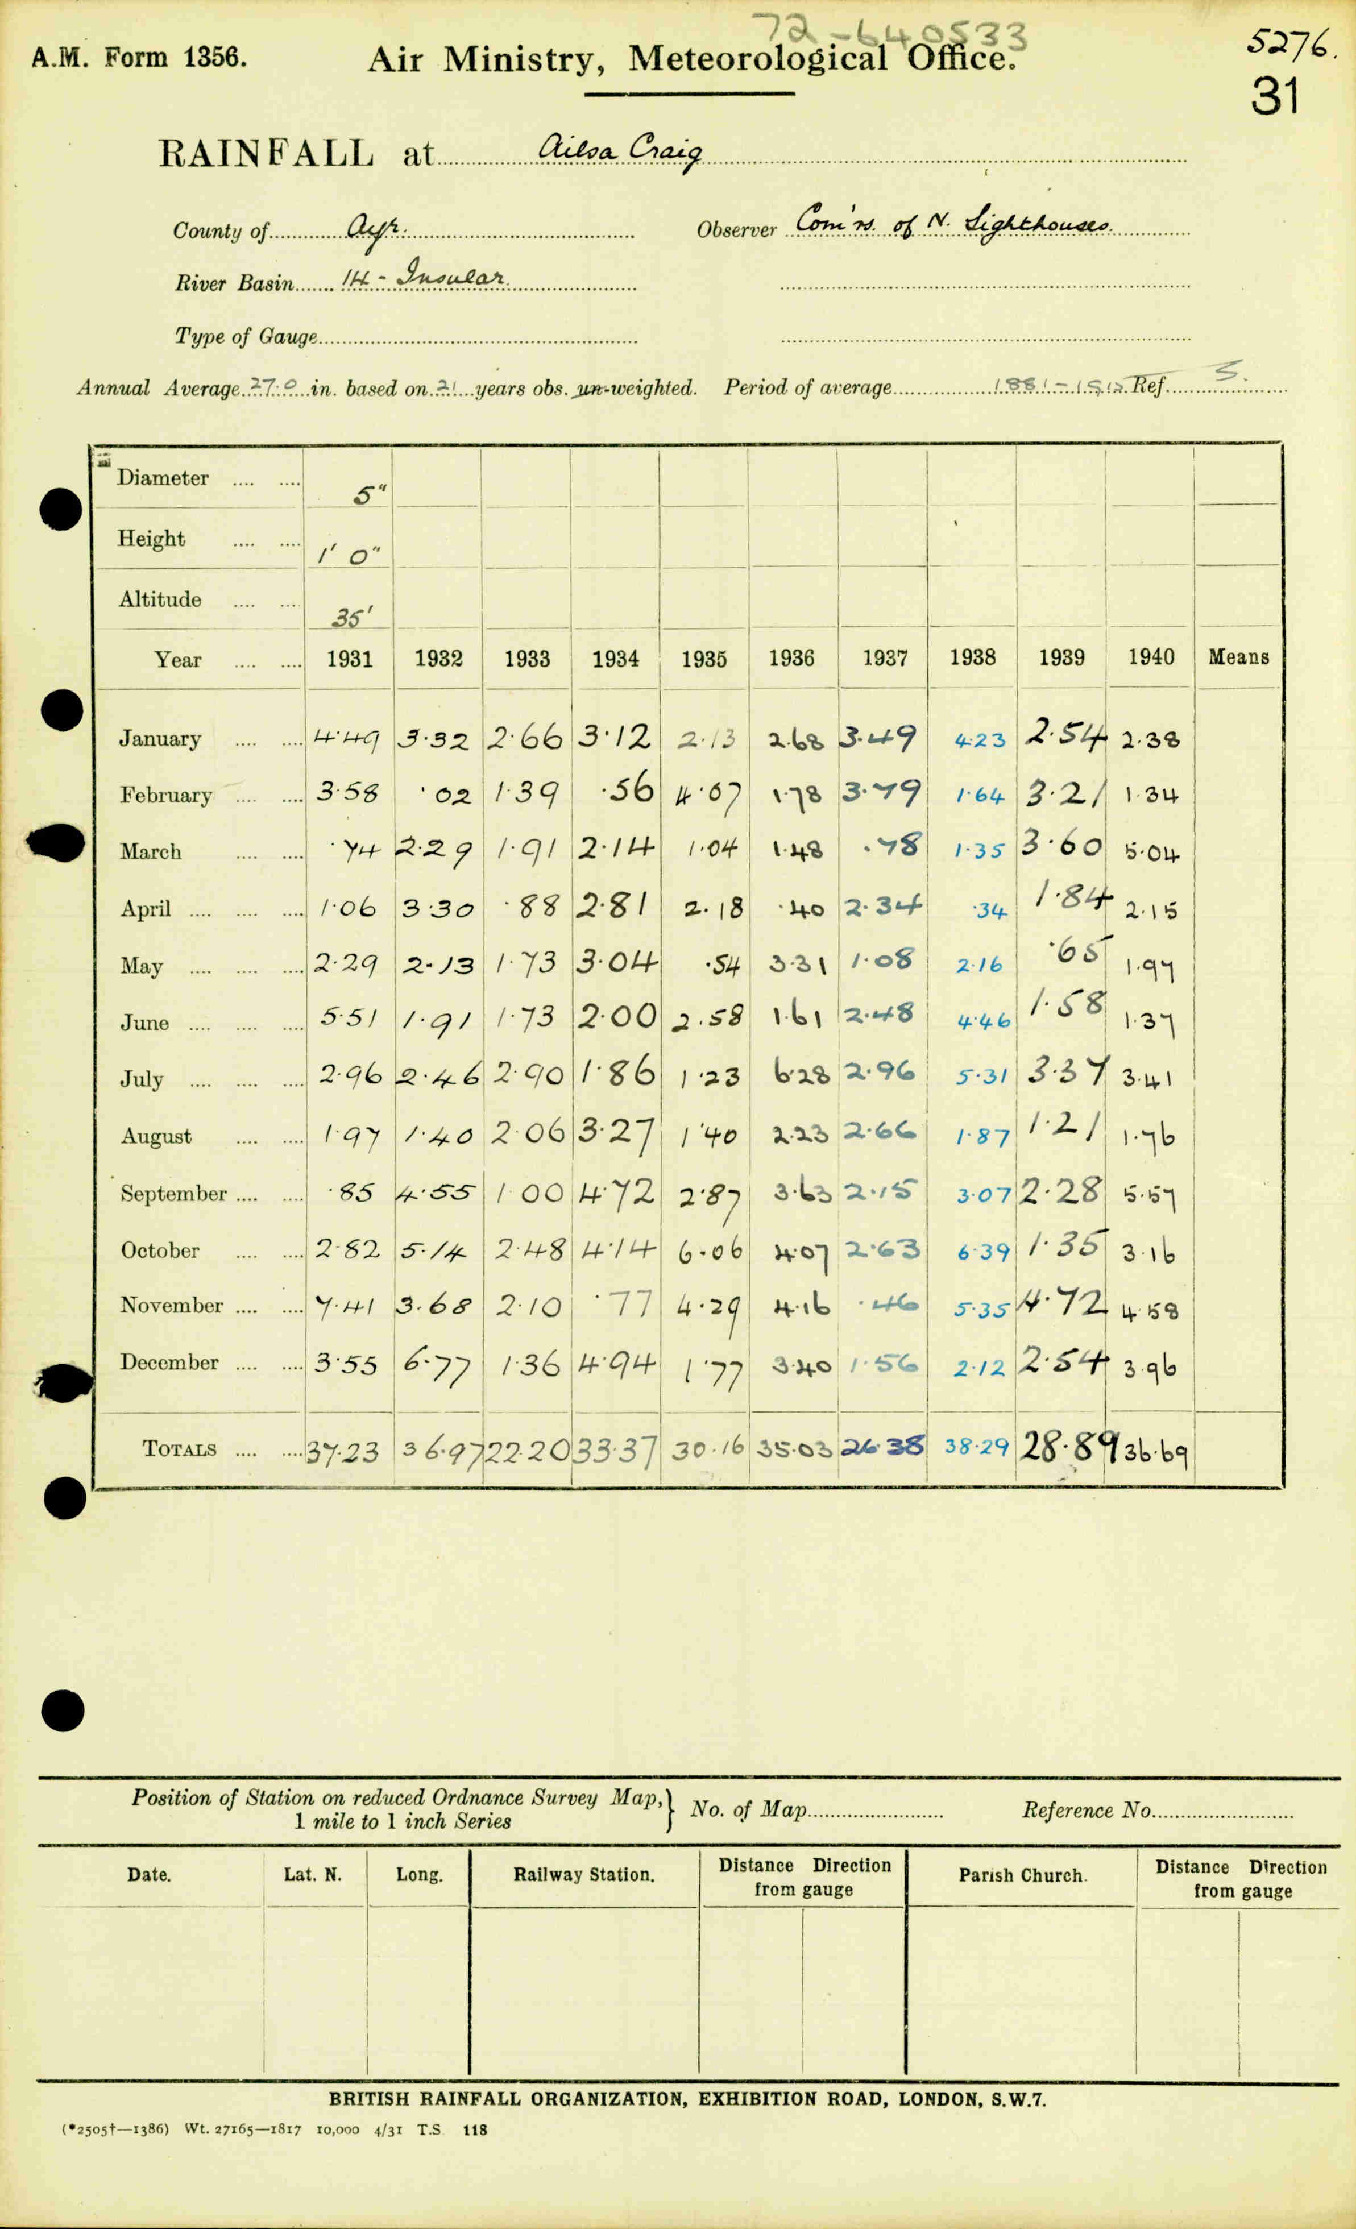 72-640533
5276.
A.M. Form 1356. Air Ministry, Meteorological Office.
31
RAINFALL at Ailsa Craig
County of Ayr. Observer Com'rs. of N. Lighthouses.
River Basin 14 - Insular.
Type of Gauge
Annual Average 27.0 in. based on 21 years obs. un-weighted. Period of average 1881-1915 Ref. S.
Diameter 5"
Height 1' 0"
Altitude 35'
Year 1931 1932 1933 1934 1935 1936 1937 1938 1939 1940 Means
January 4.49 3.32 2.66 3.12 2.13 2.68 3.49 4.23 2.54 2.38
February 3.58 .02 1.39 .56 4.07 1.78 3.79 1.64 3.21 1.34
March .74 2.29 1.91 2.14 1.04 1.48 .78 1.35 3.60 5.04
April 1.06 3.30 .88 2.81 2.18 .40 2.34 .34 1.84 2.15
May 2.29 2.13 1.73 3.04 .54 3.31 1.08 2.16 .65 1.97
June 5.51 1.91 1.73 2.00 2.58 1.61 2.48 4.46 1.58 1.37
July 2.96 2.46 2.90 1.86 1.23 6.28 2.96 5.31 3.37 3.41
August 1.97 1.40 2.06 3.27 1.40 2.23 2.66 1.87 1.21 1.76
September .85 4.55 1.00 4.72 2.87 3.63 2.15 3.07 2.28 5.57
October 2.82 5.14 2.48 4.14 6.06 4.07 2.63 6.39 1.35 3.16
November 7.41 3.68 2.10 .77 4.29 4.16 .46 5.35 4.72 4.58
December 3.55 6.77 1.36 4.94 1.77 3.40 1.56 2.12 2.54 3.96
TOTALS 37.23 36.97 22.20 33.37 30.16 35.03 26.38 38.29 28.89 36.69
Position of Station on reduced Ordnance Survey Map, } No. of Map Reference No.
1 mile to 1 inch Series
Date. Lat. N. Long. Railway Station. Distance Direction from gauge Parish Church. Distance Direction from gauge
BRITISH RAINFALL ORGANIZATION, EXHIBITION ROAD, LONDON, S.W.7.
(*2505†—1386) Wt. 27165—1817 10,000 4/31 T.S. 118